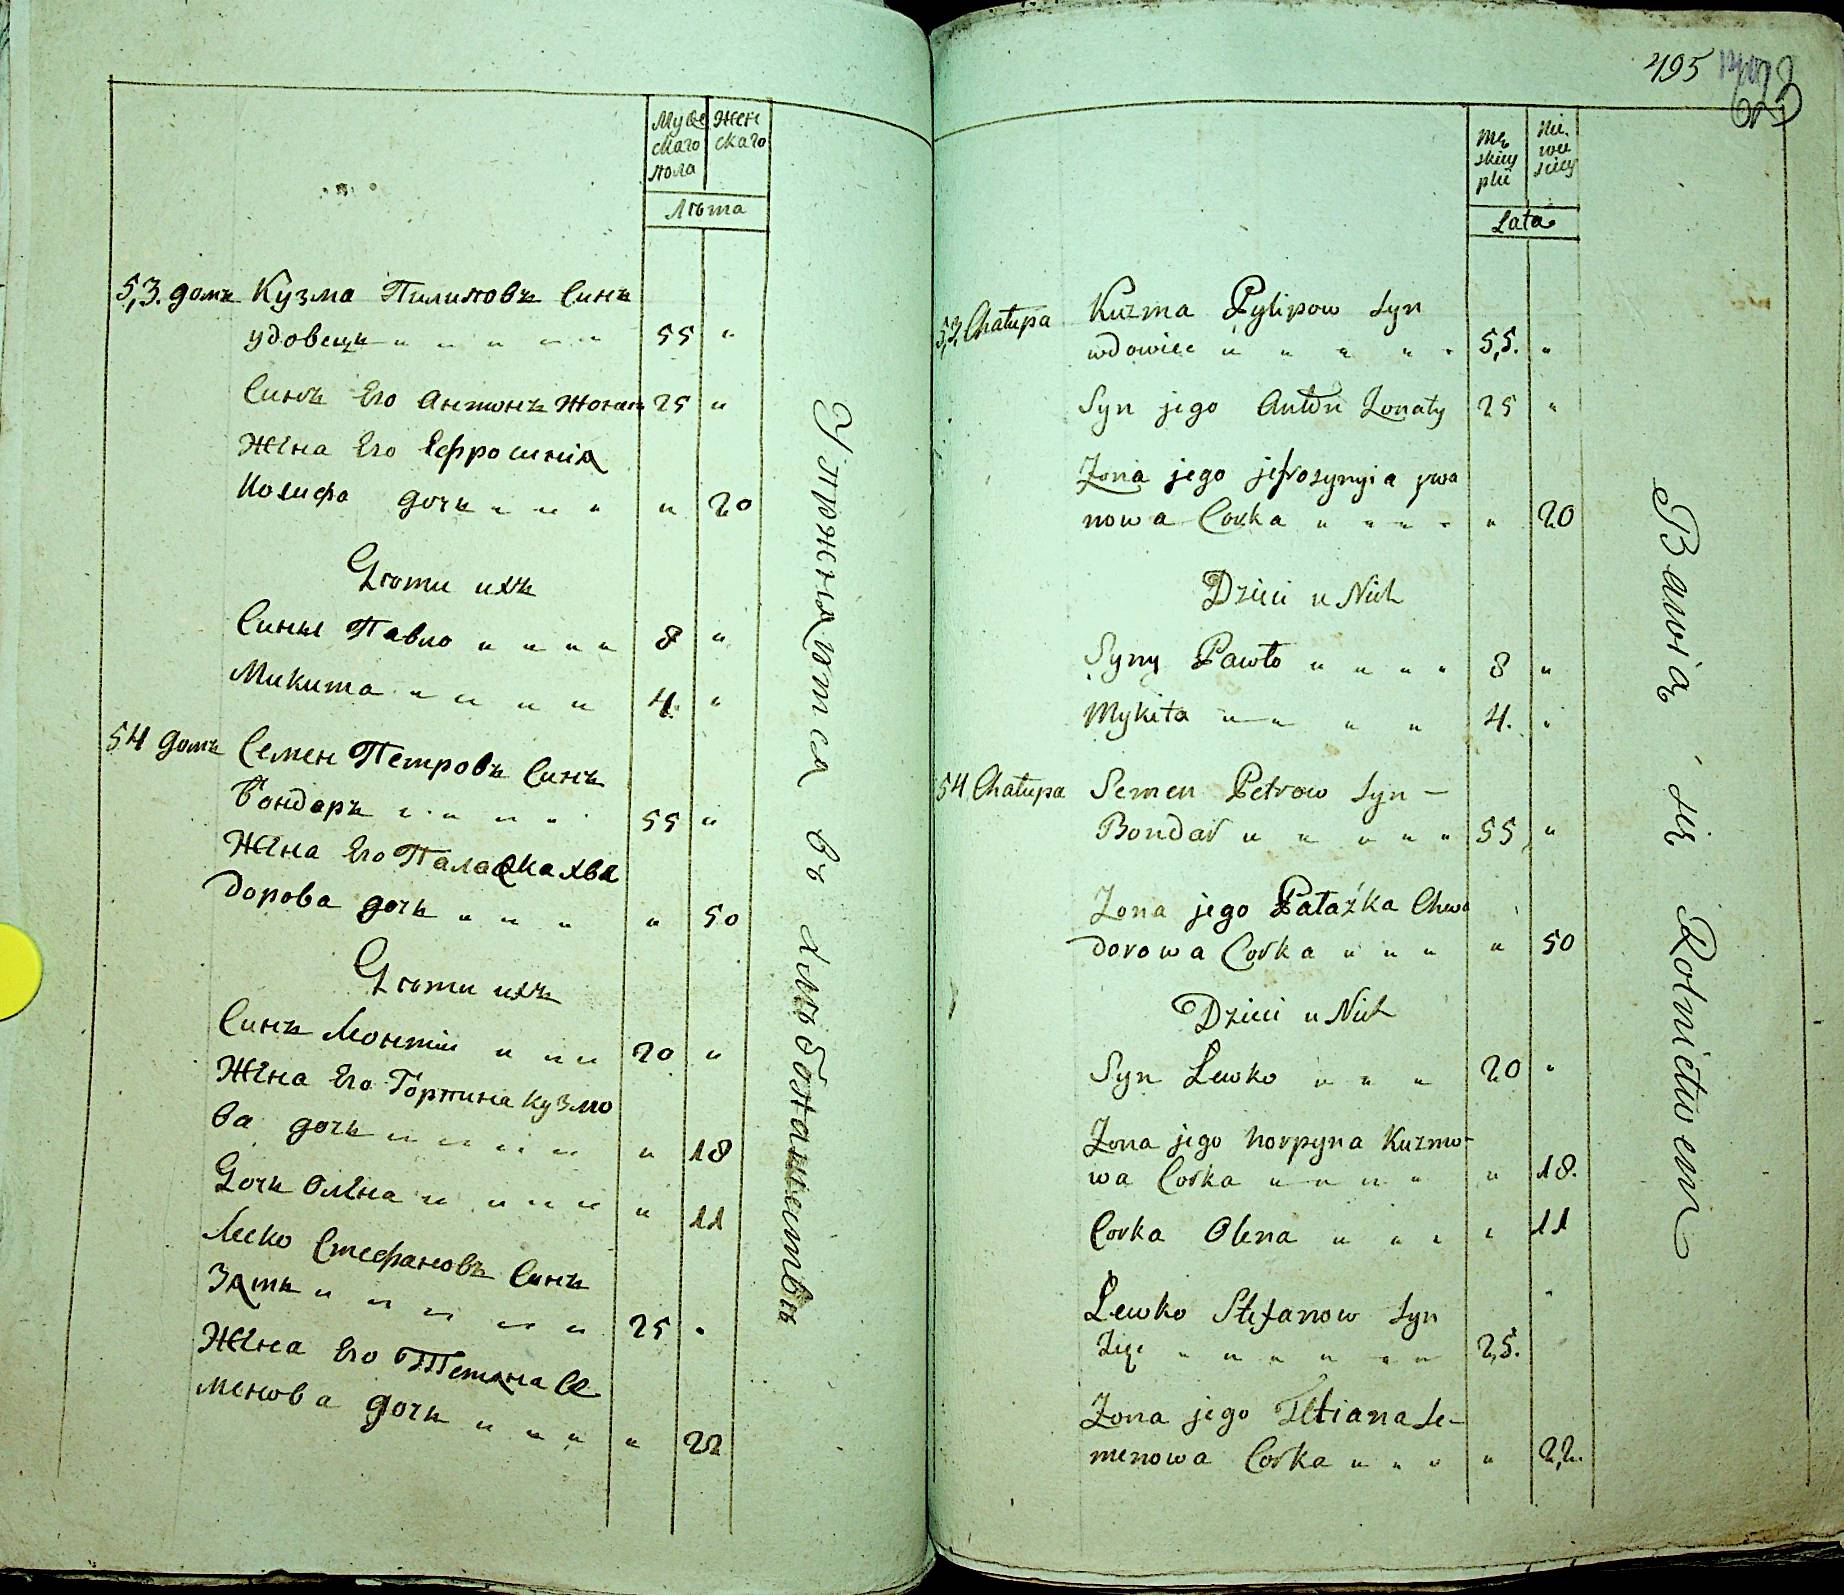 Мужескаго пола
Женскаго
Лѣта
53. домъ Кузма Пилиповъ Синъ
удовецъ " " " " " 55 "
Синъ Его Антонъ Жонатъ 25 "
Жена Его Ефросинія
Иосифа дочь " " " " 20
Дѣти ихъ
Сины Павло " " " " 8 "
Микита " " " " " 4. "
54 домъ Семен Петровъ Синъ
Бондаръ " " " " 55 "
Жена Его Палажка Хве
дорова дочь " " " " 50
Дѣти ихъ
Синъ " " " 20 "
Жена Его Горпина Кузмо
ва дочь " " " " " 18
Дочь Олена " " " " " 11
Леско Стефановъ Синъ
Зять " " " " " 25 "
Жена Его Тетяна Се
менова дочь " " " " 22
Упражняются въ хлѣбопашествѣ
495
Męskiey płci
Niewieściey
Lata
53. Chałupa Kuzma Pylipow Syn
wdowiec " " " " " 55. "
Syn jego Anton Żonaty 25 "
Żona jego jefrosynyia
nowa Corka " " " " " 20
Dzieci u Nich
Syny Pawło " " " " 8 "
Mykita " " " " 4. "
54 Chałupa Semen Petrow Syn –
Bondar " " " " " 55 "
Żona jego Pałażka Chwe
dorowa Corka " " " " 50
Dzieci u Nich
Syn Lewko " " " 20 "
Żona jego horpyna Kuzmo-
wa Corka " " " " " 18.
Corka Olena " " " " 11
Lewko Stefanow Syn "
Zięć " " " " " " 25.
Żona jego Tetiana Se-
menowa Corka " " " " 22.
Bawią się Rolnictwem